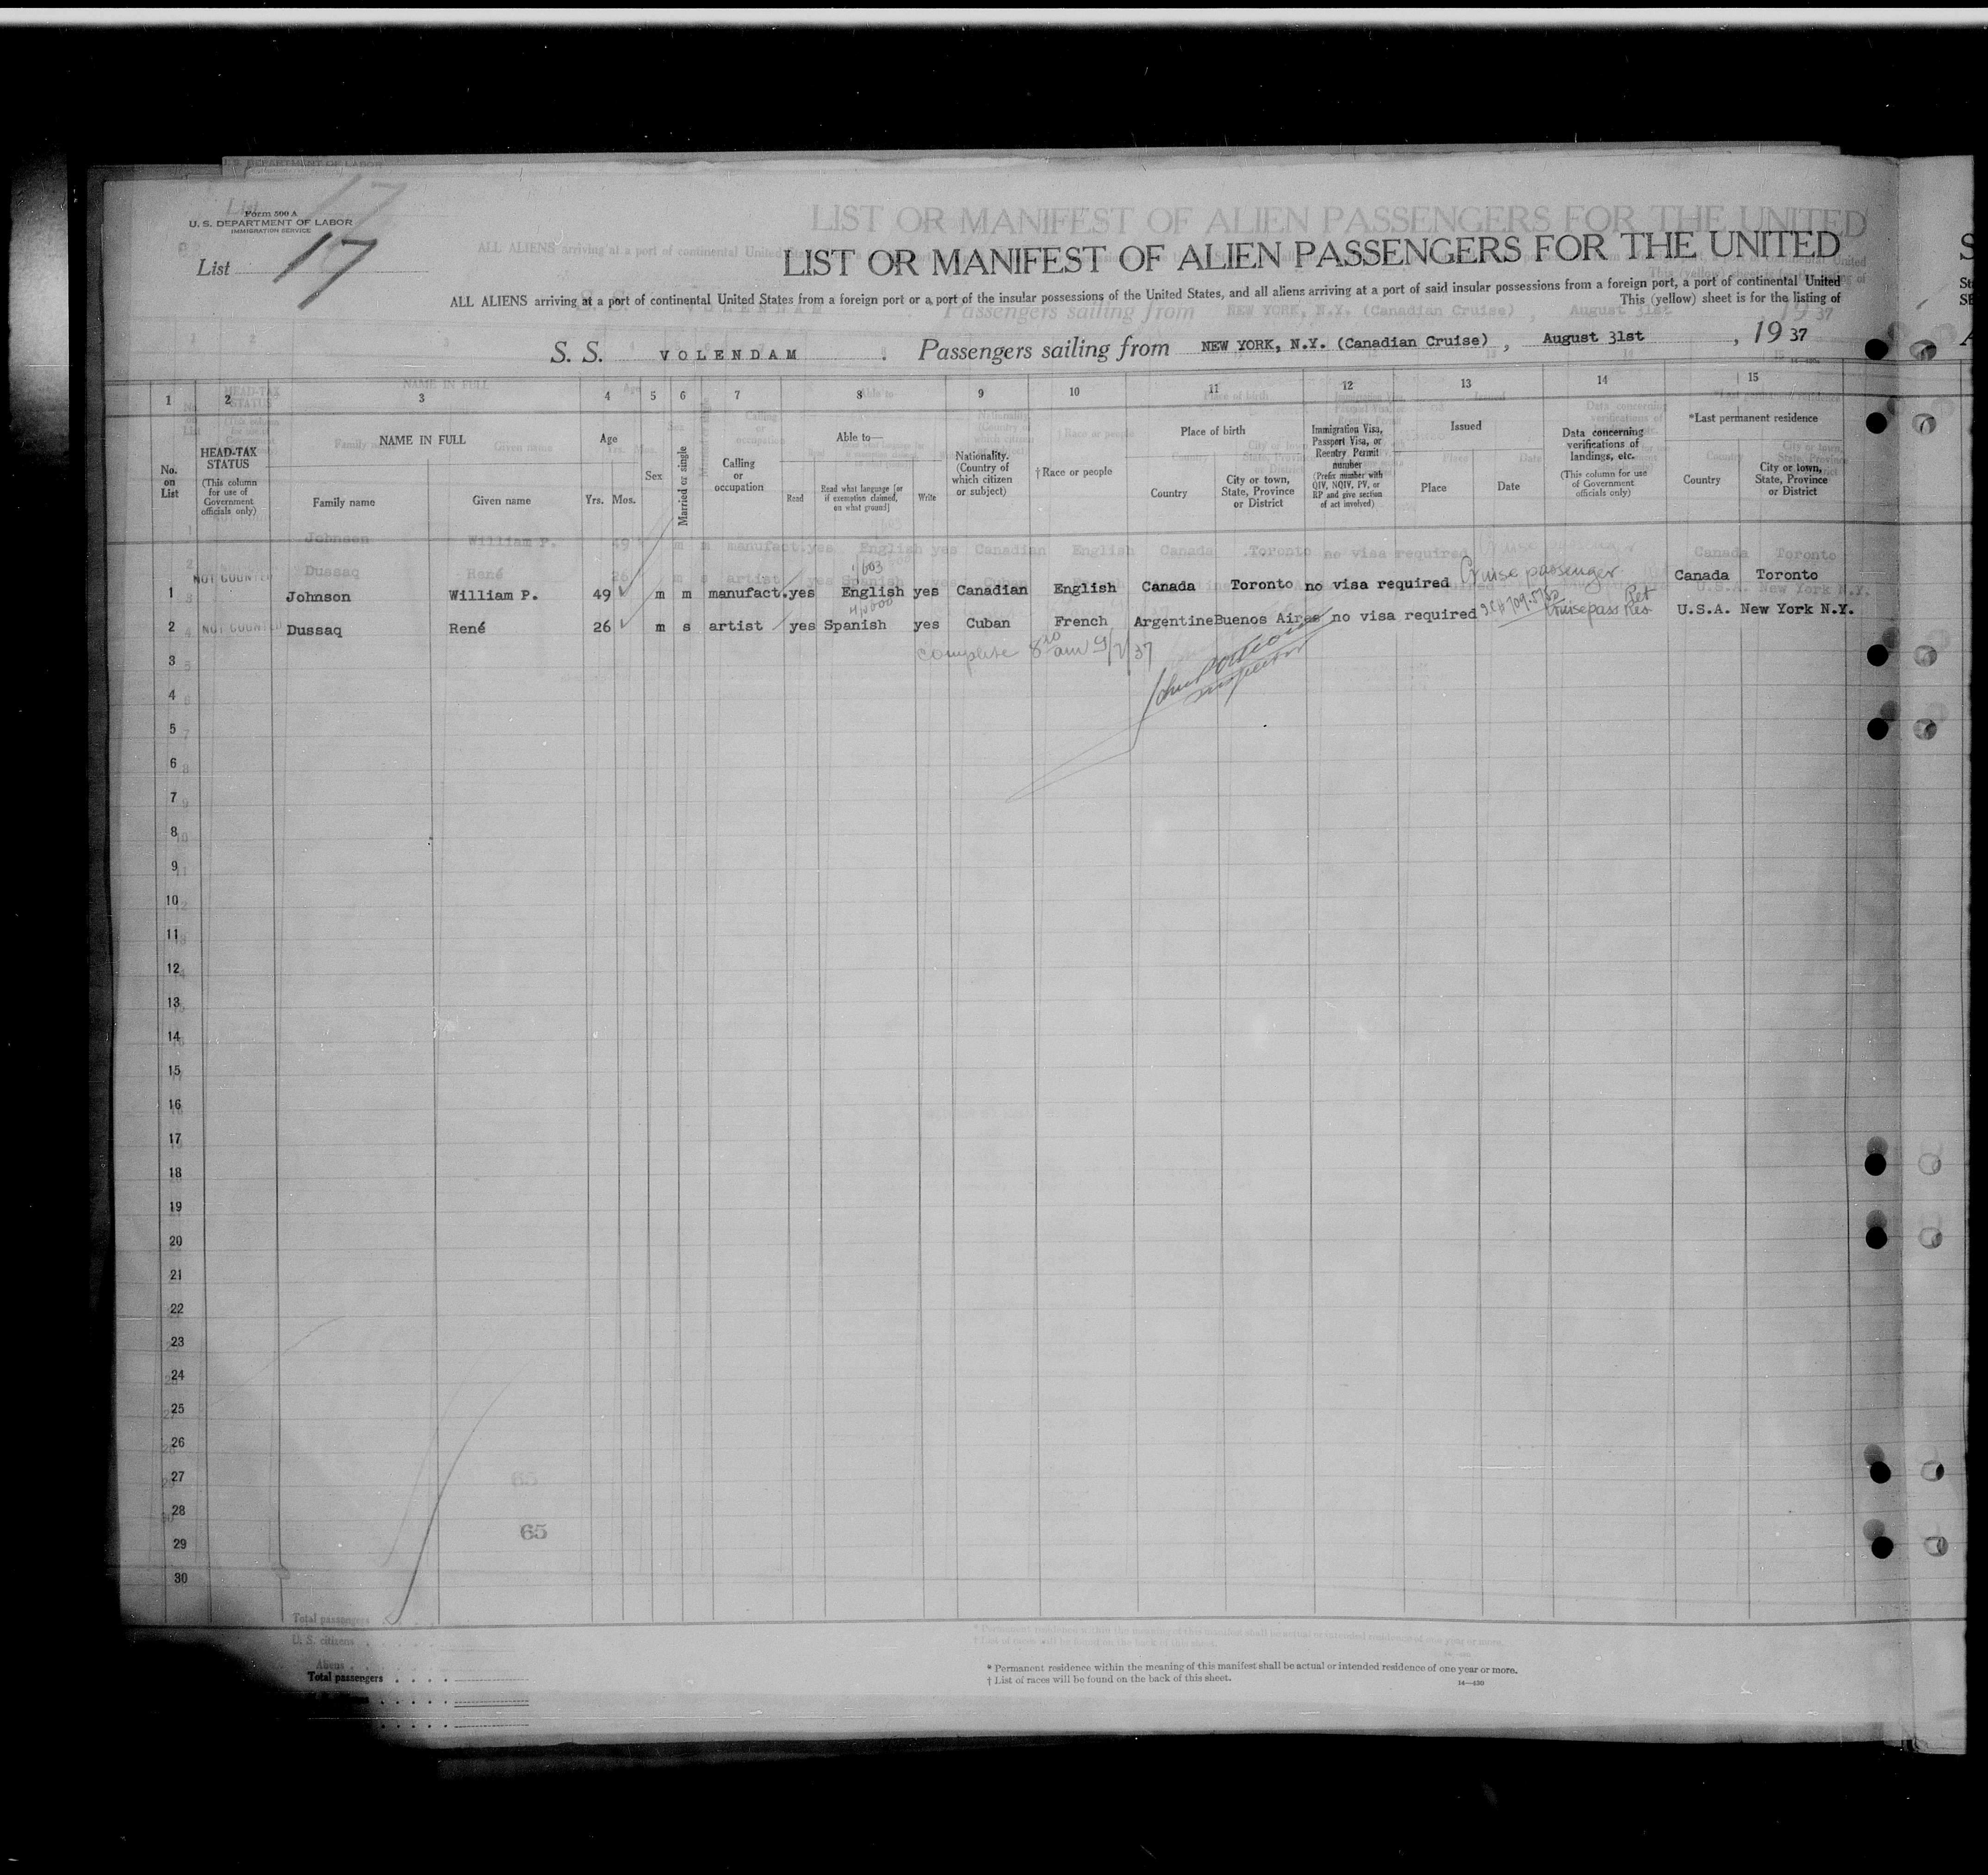 Form 500 A
U. S. DEPARTMENT OF LABOR
IMMIGRATION SERVICE
List 17
LIST OR MANIFEST OF ALIEN PASSENGERS FOR THE UNITED
ALL ALIENS arriving at a port of continental United States from a foreign port or a port of the insular possessions of the United States, and all aliens arriving at a port of said insular possessions from a foreign port, a port of continental United
This (yellow) sheet is for the listing of
S. S. VOLENDAM . Passengers sailing from NEW YORK, N.Y. (Canadian Cruise) , August 31st , 19 37
1 2 3 4 5 6 7 8 9 10 11 12 13 14 15
No. on List
HEAD-TAX STATUS
(This column for use of Government officials only)
NAME IN FULL
Family name Given name
Age
Yrs. Mos.
Sex
Married or single
Calling or occupation
Able to—
Read
Read what language [or if exemption claimed, on what ground]
Write
Nationality. (Country of which citizen or subject)
†Race or people
Place of birth
Country
City or town, State, Province or District
Immigration Visa, Passport Visa, or Reentry Permit number
(Prefix number with QIV, NQIV, PV, or RP and give section of act involved)
Issued
Place Date
Data concerning verifications of landings, etc.
(This column for use of Government officials only)
*Last permanent residence
Country
City or town, State, Province or District
1 NOT COUNTED Johnson William P. 49 m m manufact. yes English yes Canadian English Canada Toronto no visa required Cruise passenger Canada Toronto
2 NOT COUNTED Dussaq René 26 m s artist yes Spanish yes Cuban French Argentine Buenos Aires no visa required U.S.A. New York N.Y.
Complete 8 10 am 9/7/37
3
Inspector
4
5
6
7
8
9
10
11
12
13
14
15
16
17
18
19
20
21
22
23
24
25
26
27
28
65
29
30
Total passengers
* Permanent residence within the meaning of this manifest shall be actual or intended residence of one year or more.
† List of races will be found on the back of this sheet.
14—430